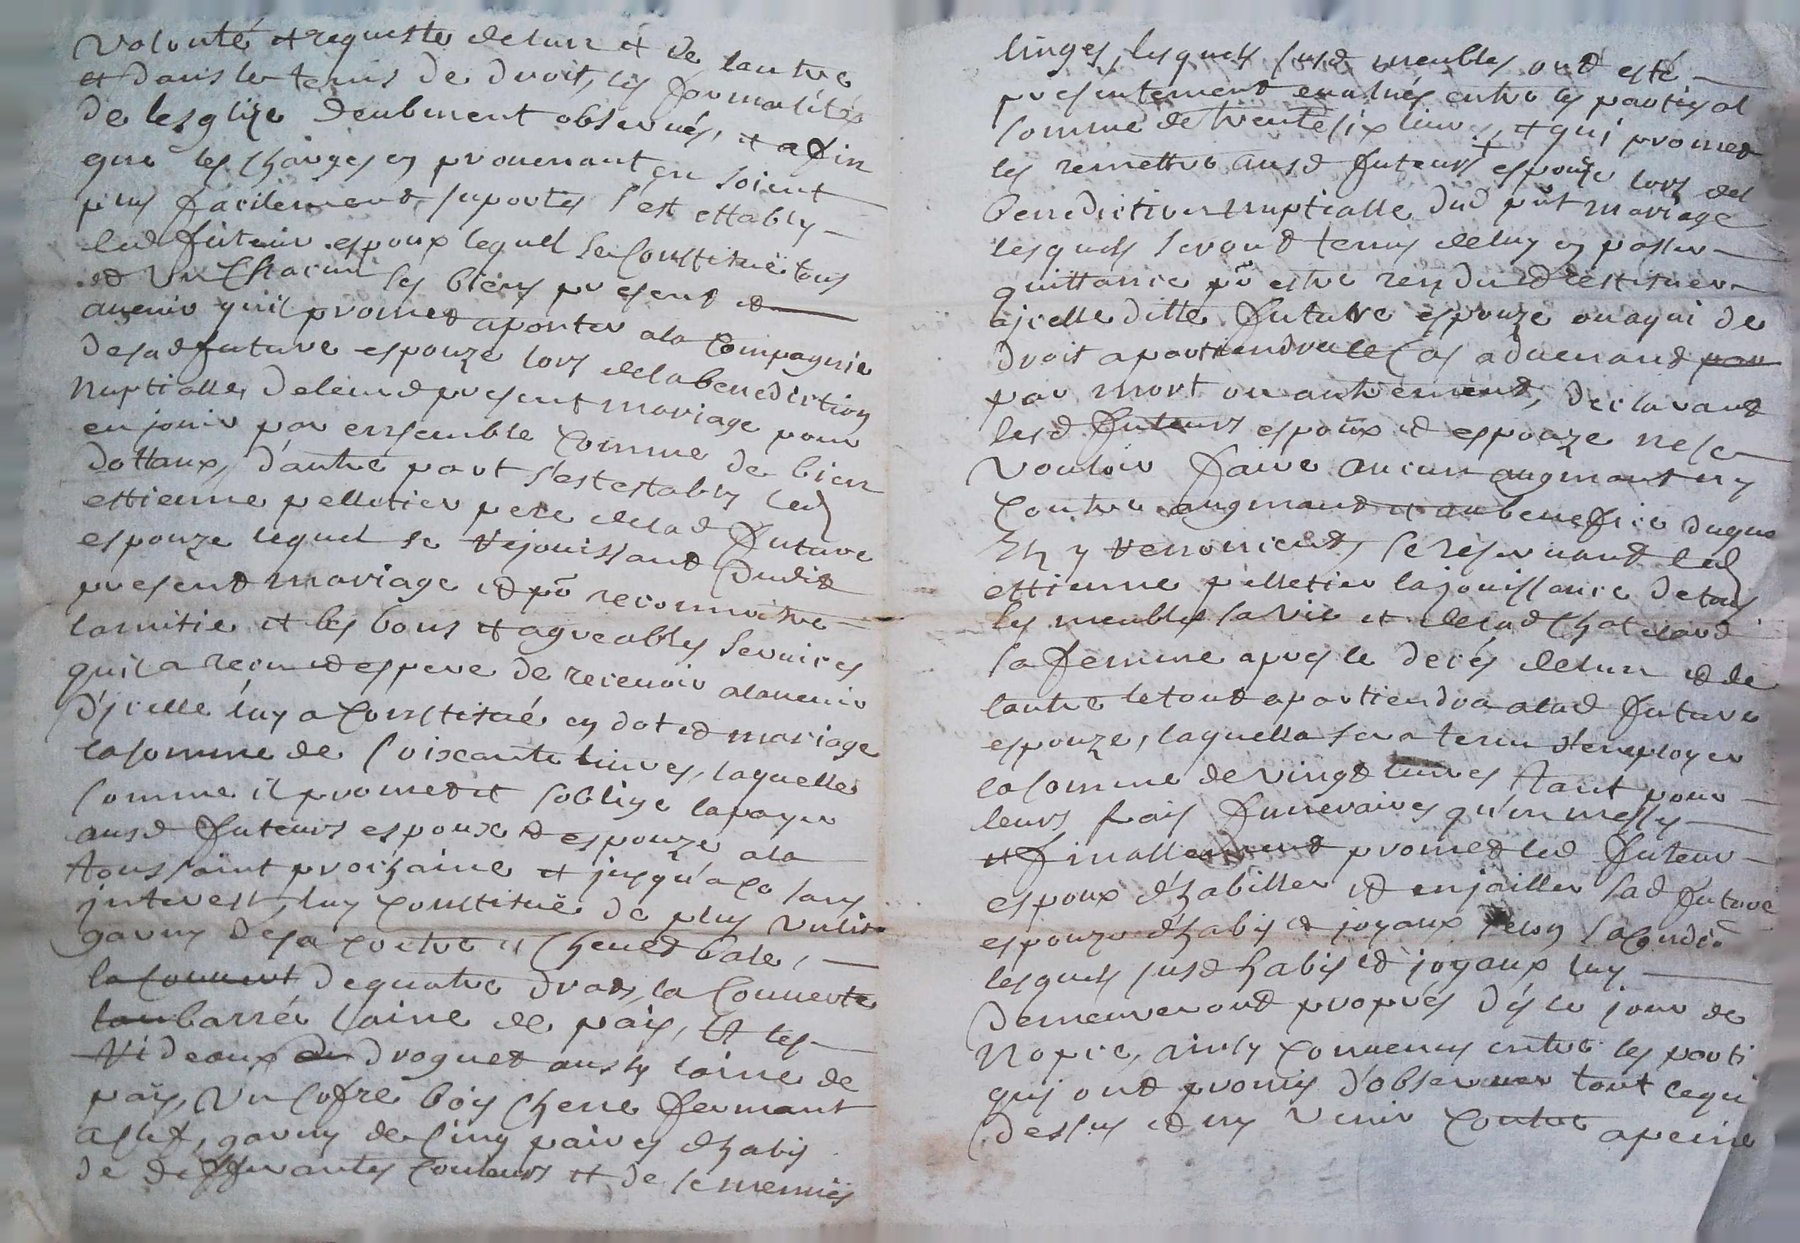 volonté et requeste de lun et de lautre
et dans le tems de droit, les formalités
de lesglize deubment observués, et afin
que les charges en provenant en soient
plus facilement suportes s'est estably
led futeur espoux lequel se constituë tous
et un chacun ses biens present et
avenir quil promet aporter a la compagnie
de sad future espouze lors de la benediction
nuptialle de leurd present mariage pour
en jouir par ensemble comme de bien
dottaux, dautre part sest estably led
estienne pelletier pere de lad future
espouze lequel se rejouissant dudit
present mariage et pr reconnoitre
lamitie et les bons et agreables services
quil a recu et espere de recevoir a lavenir
d'jcelle luy a constitué en dot et mariage
la somme de soixante livres, laquelle
somme il promet et soblige la payer
ausd futeurs espoux et espouze a la
toussaint prochaine et jusqu'a ce sans
interest, luy constituë de plus un lit
garny de sa coetre et chevet bale,
la couvert de quatre draps, la couverte
lau barrée laine de païs, et les
rideaux de droguet aussy laine de
païs, un cofre bois chene fermant
a clef, garny de cinq paires dhabis
de differantes couleurs et de se menües
linges, lesquels susd meubles ont esté
presentement evalués entre les parties al
somme de trente six livres, et qui promet
les remettre ausd futeurs espouze lors del
benediction nuptialle dud pnt mariage
lesquels seront tenus de luy en passer
quittance pr estre rendu et restituer
a jcelle ditte future espouze ou a qui de
droit apartiendra le cas advenant par
par mort ou autrement, declarant
lesd futeurs espoux et espouze ne se
vouloir faire aucun augmant ny
contre augmant et au benefice duquel
Ils y renoncent, se reservant led
estienne pelletier la jouissance de tous
les meubles sa vie et de lad chatelard
sa femme apres le deces de lun et de
lautre le tout apartiendra a lad future
espouze, laquelle sera tenu d'employer
la somme de vingt livres tant pour
leurs frais funeraires qu'en messes
et finallement promet led futeur
espoux d'habiller et enjailler sad future
espouze d'habis et joyaux selon sa condion
lesquels susd habis et joyaux luy
demeureront propres dés le jour de
nopce, ainsy convenus entre les parti
qui ont promis d'observer tout ce qui
dessus et ny venir contre a peine